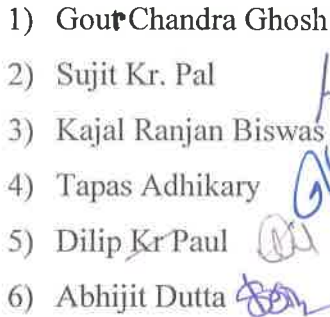 1) Gour Chandra Ghosh
2) Sujit Kr. Pal
3) Kajal Ranjan Biswas
4) Tapas Adhikary
5) Dilip Kr Paul
6) Abhijit Dutta